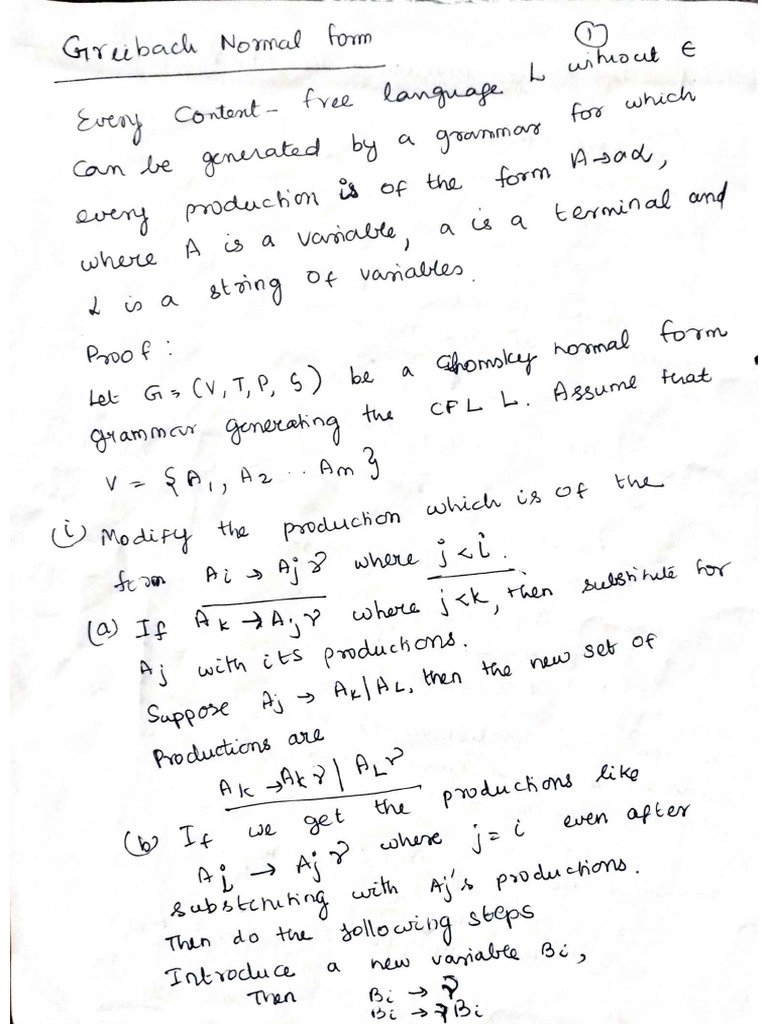 Greibach Normal form
①
Every Context-free language L without ∈
can be generated by a grammar for which
every production is of the form A→aα,
where A is a variable, a is a terminal and
α is a string of variables.
Proof :
Let G = (V, T, P, S) be a Chomsky normal form
grammar generating the CFL L. Assume that
V = {A₁, A₂ .. Am}
(i) Modify the production which is of the
form Ai → Ajγ where j<i.
(a) If Ak → Ajγ where j<k, then substitute for
Aj with its productions.
Suppose Aj → Ak|AL, then the new set of
Productions are
Ak → Akγ | ALγ
(b) If we get the productions like
Ai → Ajγ where j = i even after
substituting with Aj's productions.
Then do the following steps
Introduce a new variable Bi,
Then Bi → γ
Bi → γBi